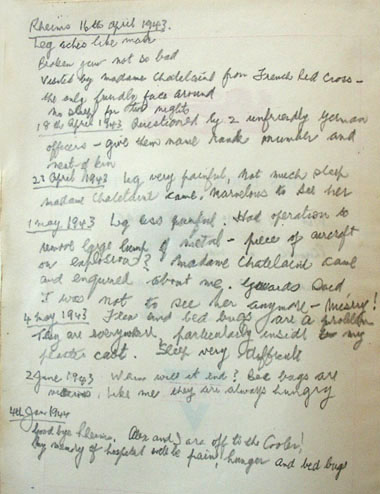 Rheims 16th april 1943.
Leg aches like mad
Broken jaw not so bad
Visited by madame Chatelaine from French Red Cross -
the only friendly face around
no sleep for two nights
18th April 1943 Questioned by 2 unfriendly German
officers - give them name rank number and
next of kin
23 April 1943 Leg very painful, not much sleep
madame Chatelaine came, marvelous to see her
1 may 1943 Leg less painful. Had operation to
remove large lump of metal - piece of aircraft
or explosion? madame Chatelaine came
and enquired about me. Guards said
I was not to see her anymore - misery!
4 may 1943 Flea and bed bugs are a problem
They are everywhere, particularly inside my
plaster cast. Sleep very difficult
2 June 1943 When will it end? Bed bugs are
like me they are always hungry
4th Jan 1944
Goodbye Rheims. Alex and I are off to the Cooler!
my memory of hospital will be pain, hunger and bed bugs